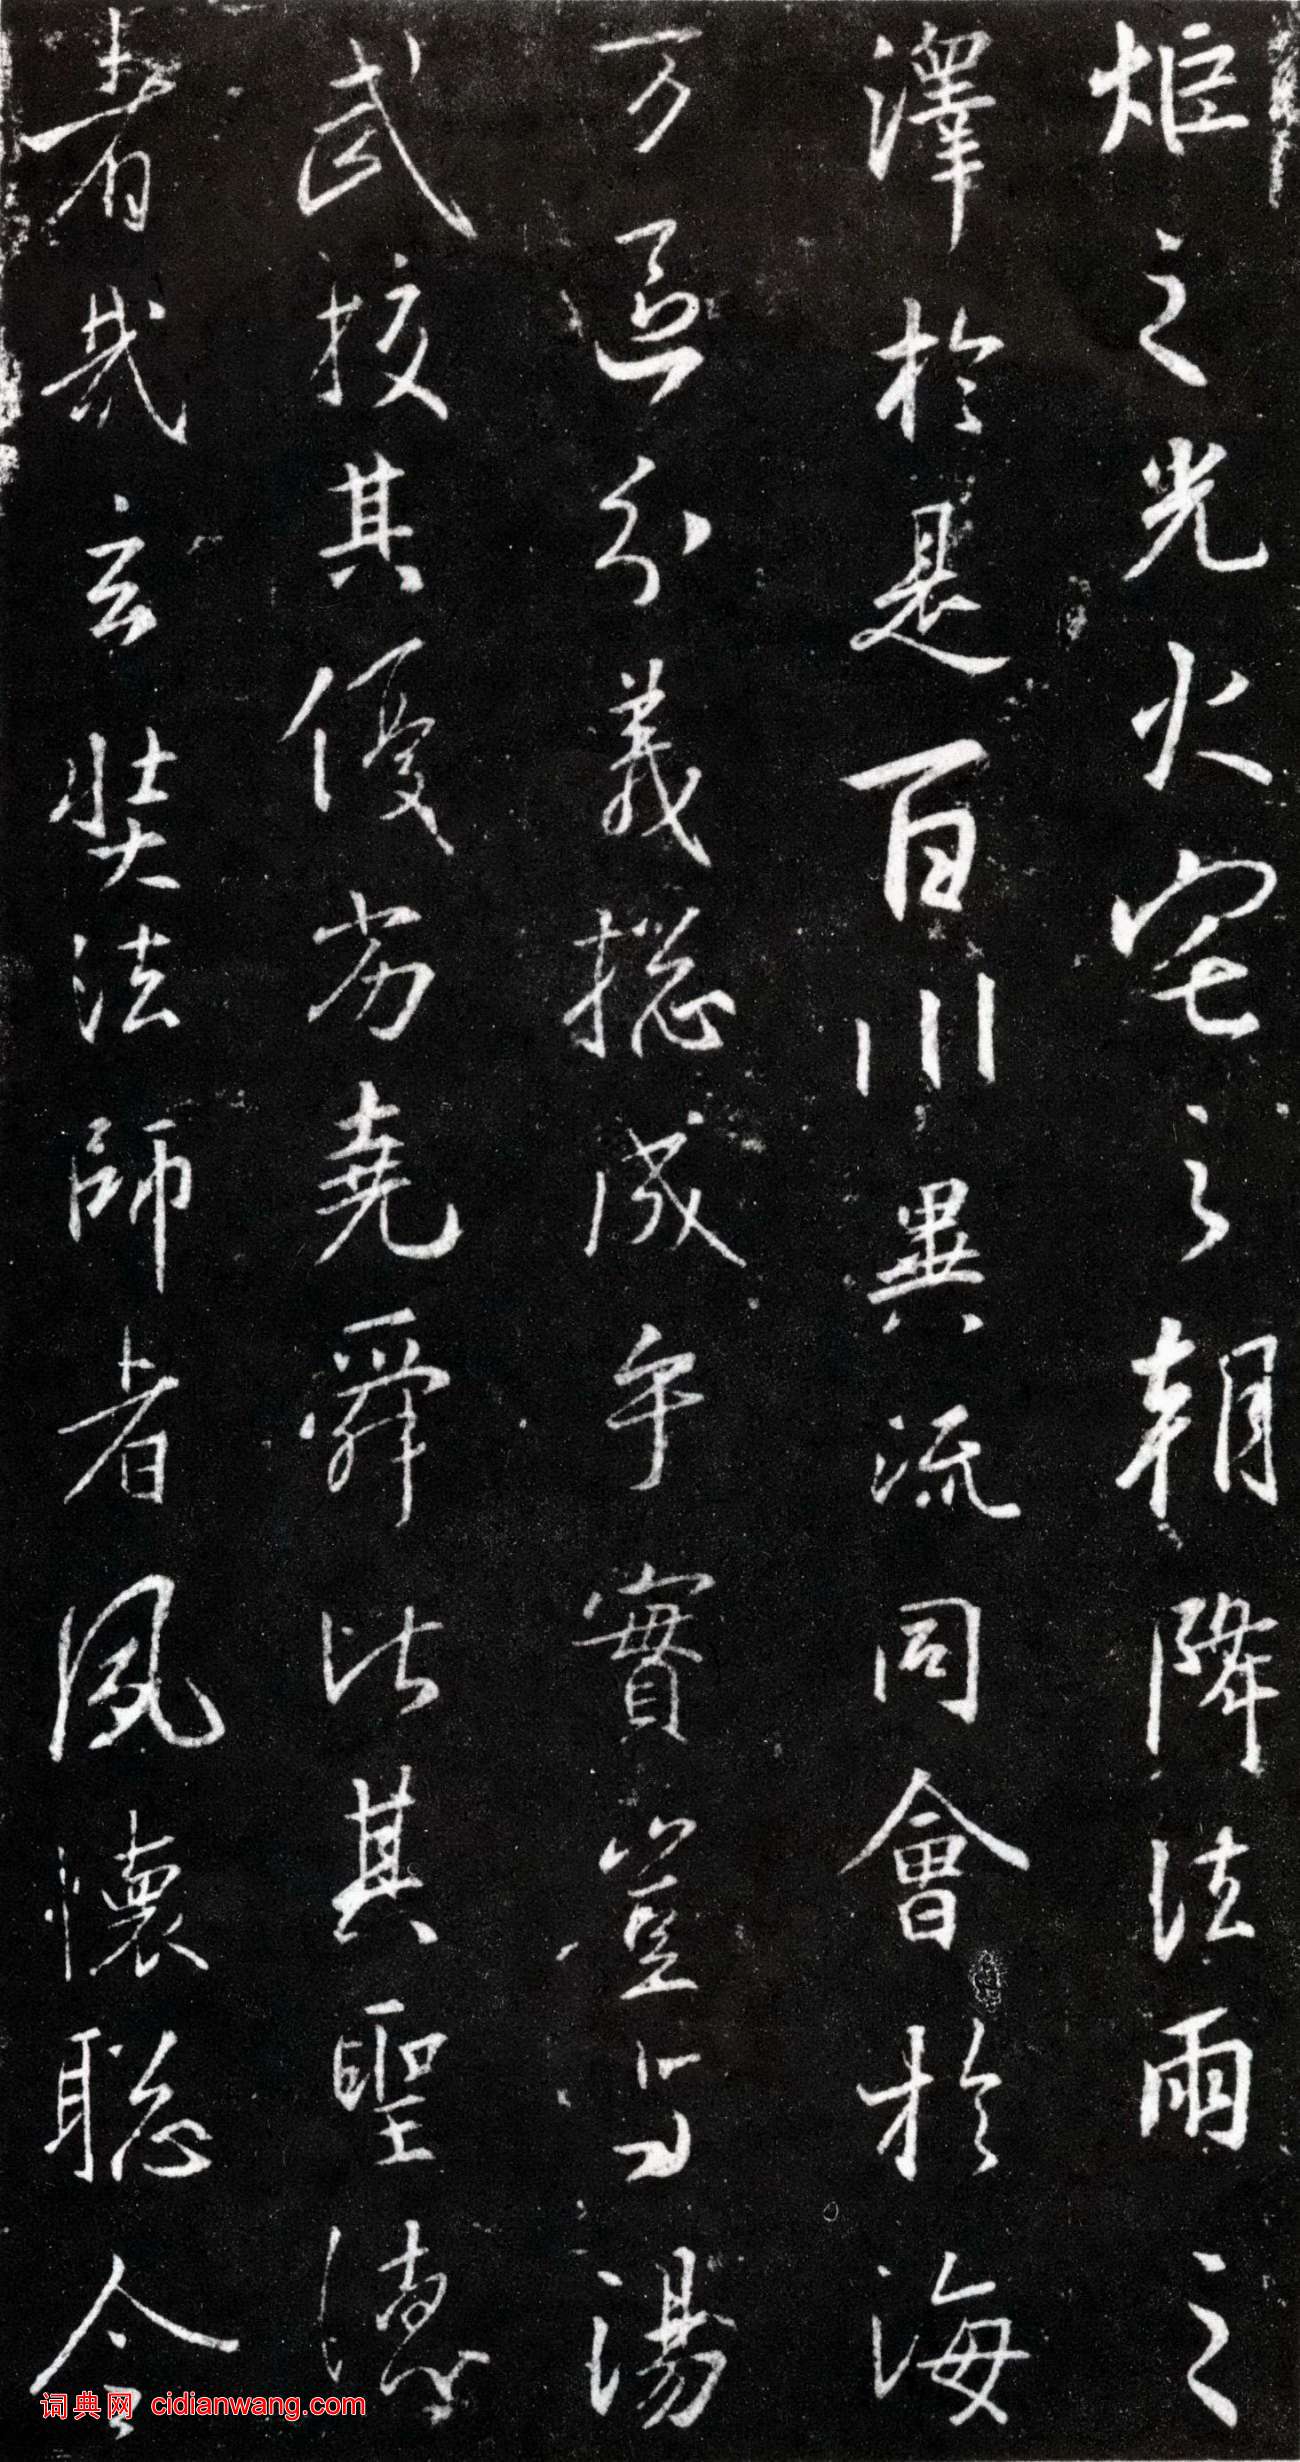 炬之光火宅之朝降法雨之
澤於是百川異流同會於海
万區分義揔成乎實豈与湯
武挍其優劣堯舜比其聖德
者哉玄奘法師者夙懷聡令
词典网 cidianwang.com